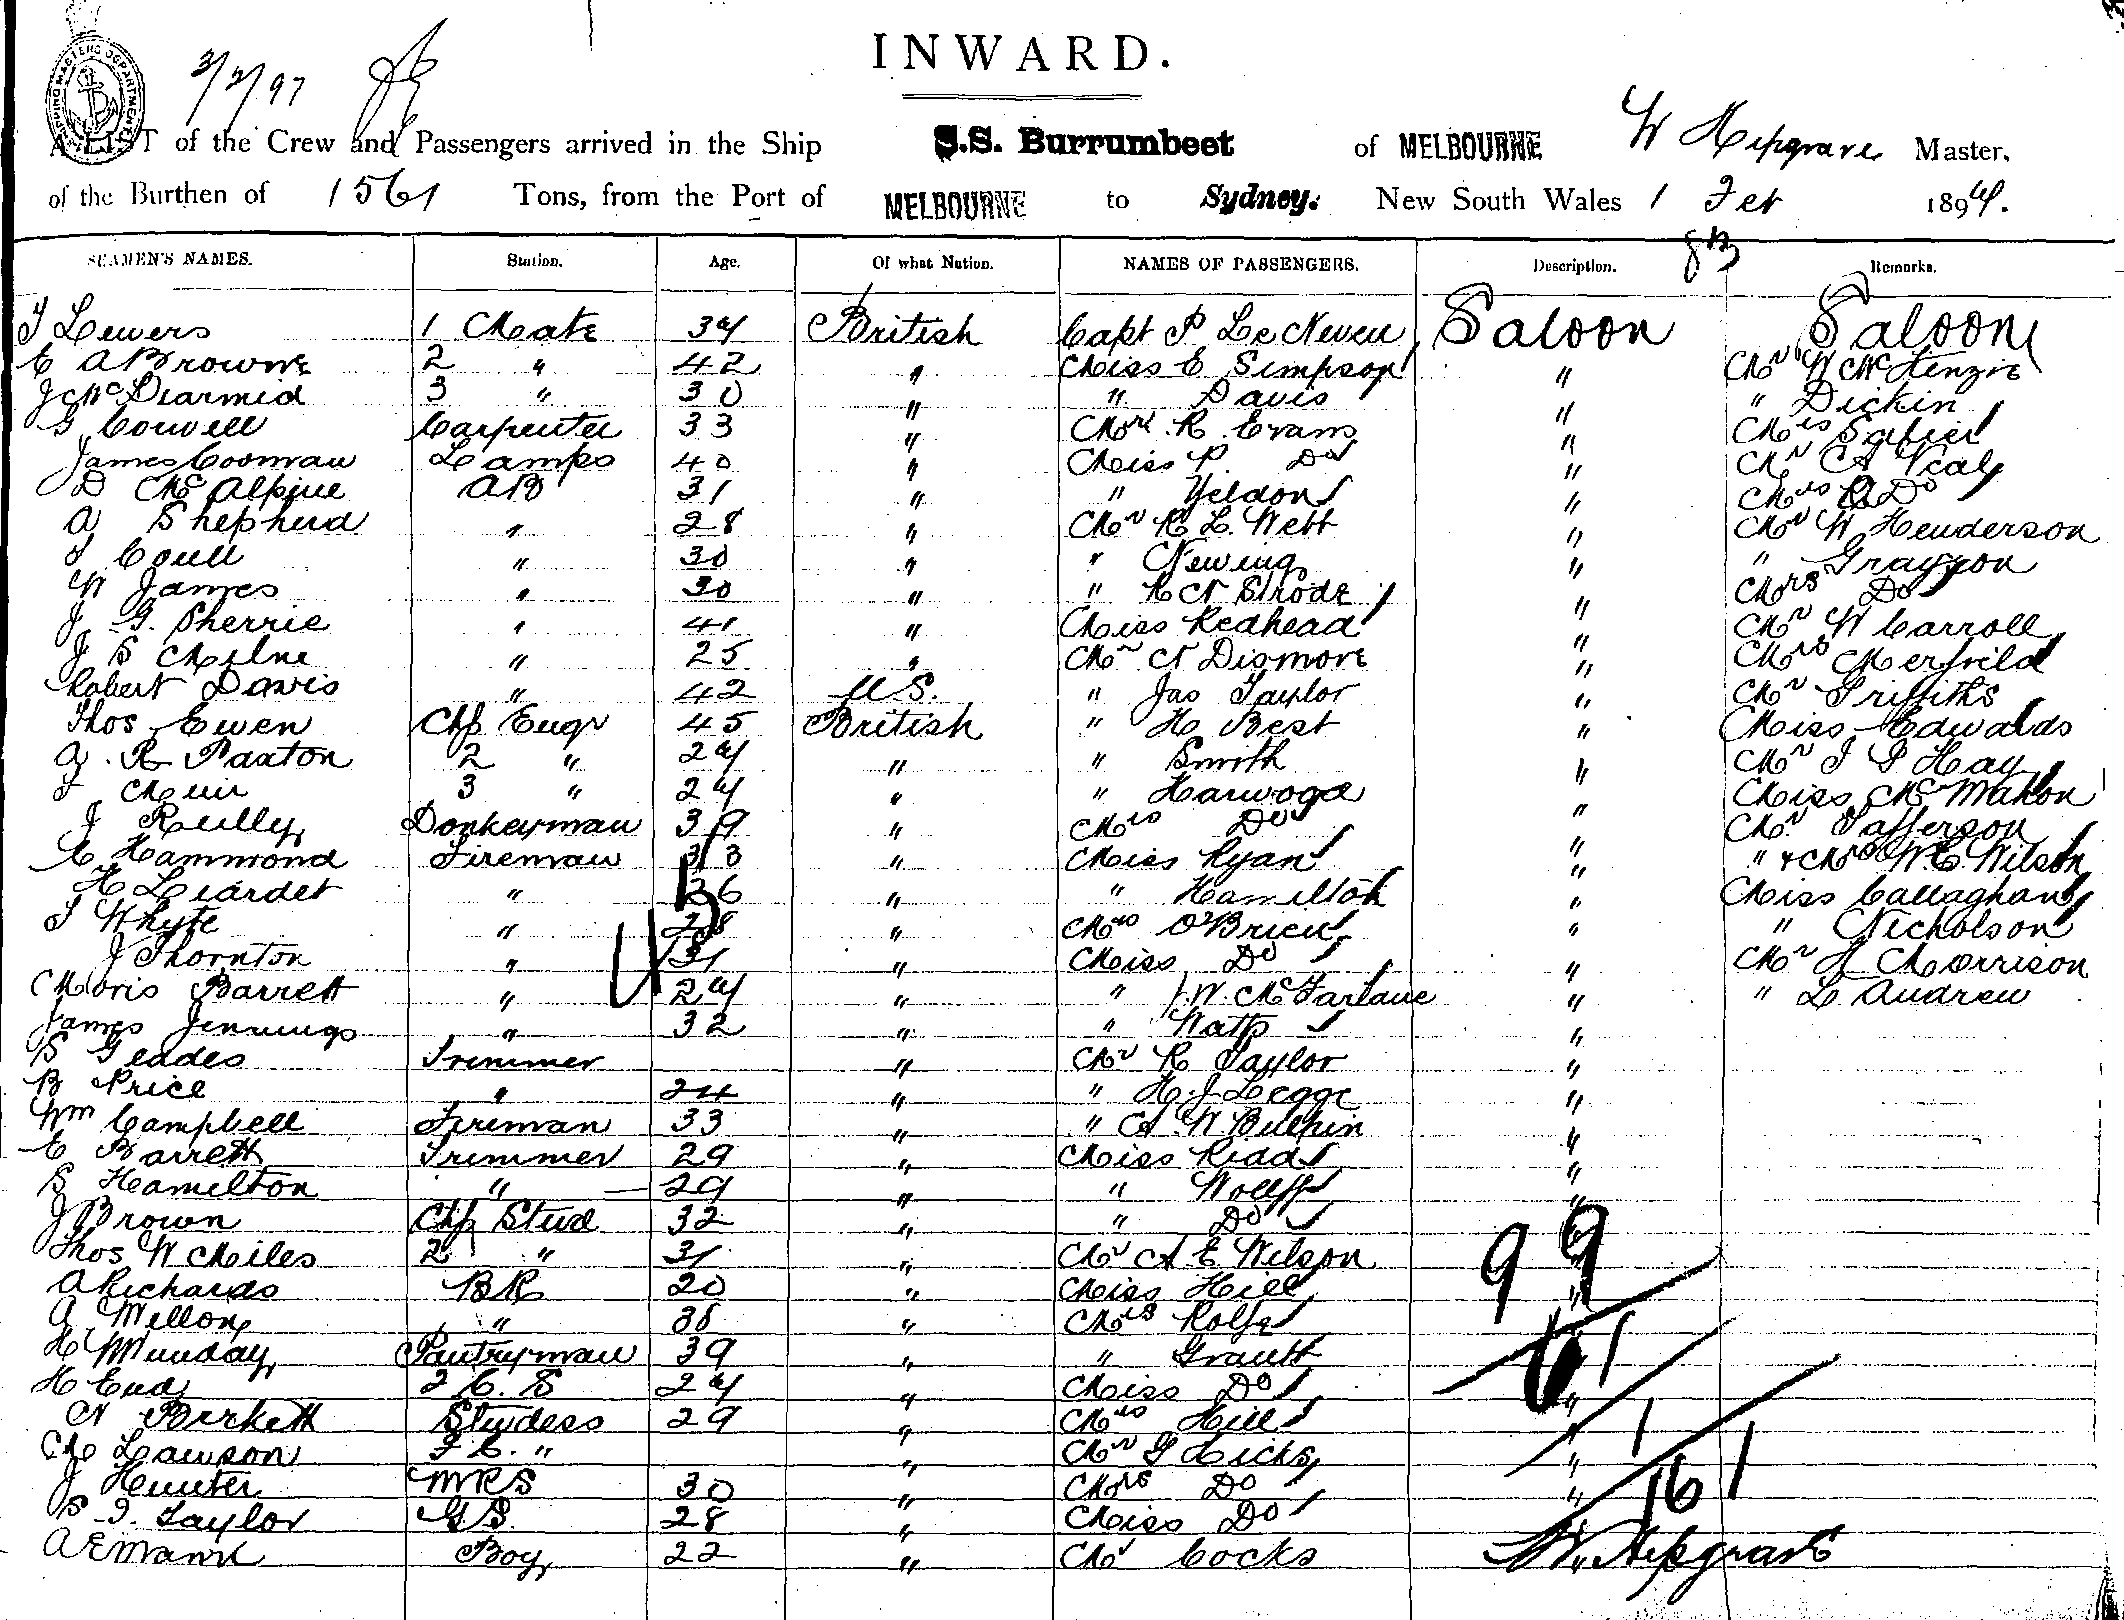 INWARD.
3/2/97
A LIST of the Crew and Passengers arrived in the Ship S.S. Burrumbeet of MELBOURNE W Hipgrave Master,
of the Burthen of 1561 Tons, from the Port of MELBOURNE to Sydney. New South Wales 1 Feb 1897.
SEAMEN'S NAMES. Station. Age. Of what Nation. NAMES OF PASSENGERS. Description. Remarks.
Lewers 1 Mate 34 British Capt P Le Neveu Saloon Saloon
E A Browne 2 " 42 " Miss E Simpson " Mr W McKenzie
J McDiarmid 3 " 30 " " Davis " " Dickin
Cowell Carpenter 33 " Mr R Evans " Mrs
James Cooman Lamps 40 " Miss P. Do " Mr A Veal
D McAlpine AB 31 " " Yeldon " Mrs Do
A Shepherd " 28 " Mr R L Webb " Mr W Henderson
Coull " 30 " " Newing " " Grayson
W James " 30 " " R N Strode " Mrs Do
J G. Sherrie " 41 " Miss Redhead " Mr W Carroll
J S Milne " 25 " Mr N Dismore " Mrs Merfield
Robert Davis " 42 U S. " Jas Taylor " Mr Griffiths
Thos Ewen Chf Engr 45 British " H Best " Miss Edwards
A. R Paxton 2 " 24 " " Smith " Mr Hay
Muir 3 " 24 " " Harwood " Miss McMahon
J Reilly Donkeyman 39 " Mrs Do " Mr Jafferson
C Hammond Fireman 33 " Miss Ryan " " & Mrs W. C. Wilson
H Liardet " 36 " " Hamilton " Miss Callaghan
Whyte " 28 " Mrs O'Brien " " Nicholson
J Thornton " 31 " Miss Do " Mr H Morrison
Moris Barrett " 24 " " J. W. McFarlane " " L Andrew
James Jennings " 32 " " Watts "
S Geddes Trimmer " Mr R Taylor "
B Price " 24 " " H. J Legge "
Wm Campbell Fireman 33 " " A. W. Bulpin "
E Barrett Trimmer 29 " Miss Kidd "
S Hamilton " 29 " " Wolff "
J Brown Chf Stud 32 " " Do "
Thos W Miles 2 " 31 " Mr A E Wilson " 99
A Richards BR 20 " Miss Hill "
A Mellon " 38 " Mrs Rolfe "
H Munday Pantryman 39 " " Grautt " 61
H End 2 C. S 24 " Miss Do "
N Birkett Studess 29 " Mrs Hill " 1
M Lawson " " Mr G Hicks "
J Hunter MRS 30 " Mrs Do " 161
S. J. Taylor G.S. 28 " Miss Do
A E Mann Boy 22 " Mr Cocks W. Hipgrave